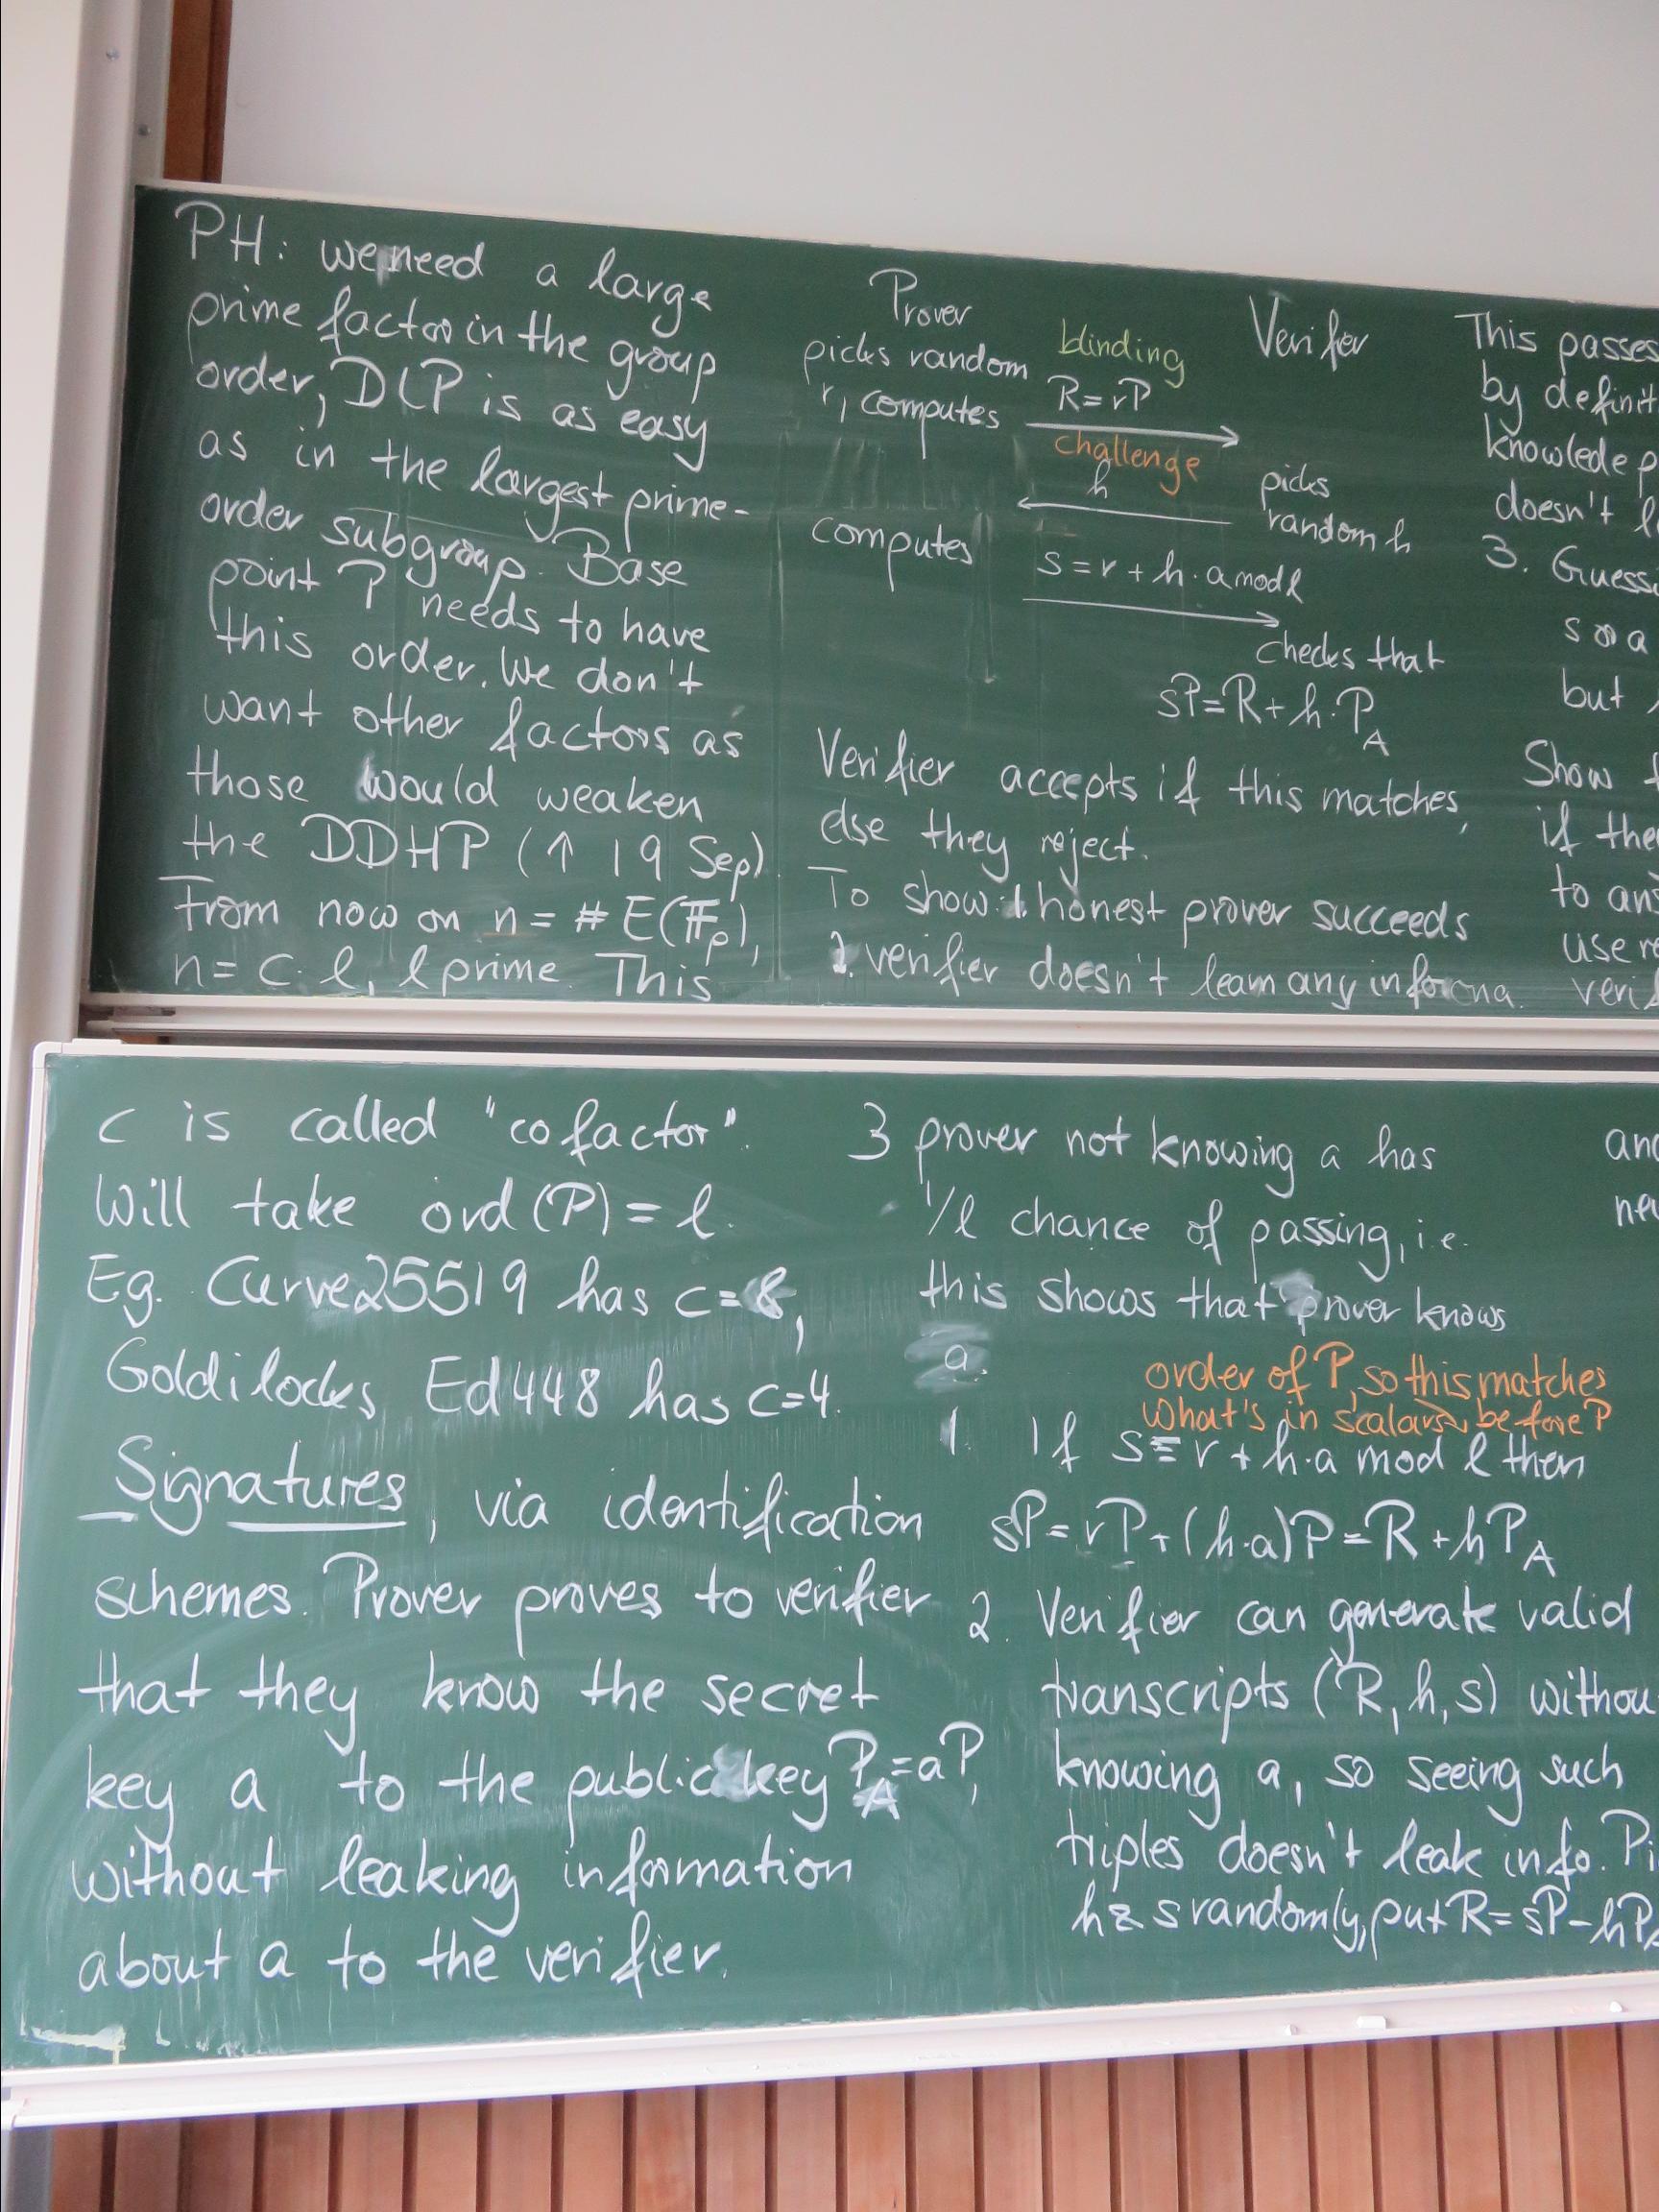 PH: we need a large
prime factor in the group
order, DLP is as easy
as in the largest prime-
order subgroup. Base
point P needs to have
this order. We don't
want other factors as
those would weaken
the DDHP (↑ 19 Sep)
From now on n = # E(𝔽p),
n = c·l, l prime. This
c is called "cofactor".
Will take ord(P) = l.
Eg. Curve25519 has c=8,
Goldilocks, Ed448 has c=4.
Signatures, via identification
schemes. Prover proves to verifier
that they know the secret
key a to the public key P_A=aP,
without leaking information
about a to the verifier.
Prover
picks random
r, computes
blinding
R=rP
Verifier
challenge
h
picks
random h
computes
s = r + h·a mod l
checks that
sP=R+h·P_A
Verifier accepts if this matches,
else they reject.
To show: 1. honest prover succeeds
2. verifier doesn't learn any informa.
3 prover not knowing a has
1/l chance of passing, i.e.
this shows that prover knows
a.
order of P, so this matches
what's in scalars before P
1. If s≡r+h·a mod l then
sP=rP+(h·a)P=R+hP_A
2. Verifier can generate valid
transcripts (R,h,s) withou
knowing a, so seeing such
triples doesn't leak info. Pi
h & s randomly, put R=sP-hP_A
This passes
by definit
knowlede p
doesn't l
3. Guessi
s or a
but
Show
if the
to ans
use re
veri
and